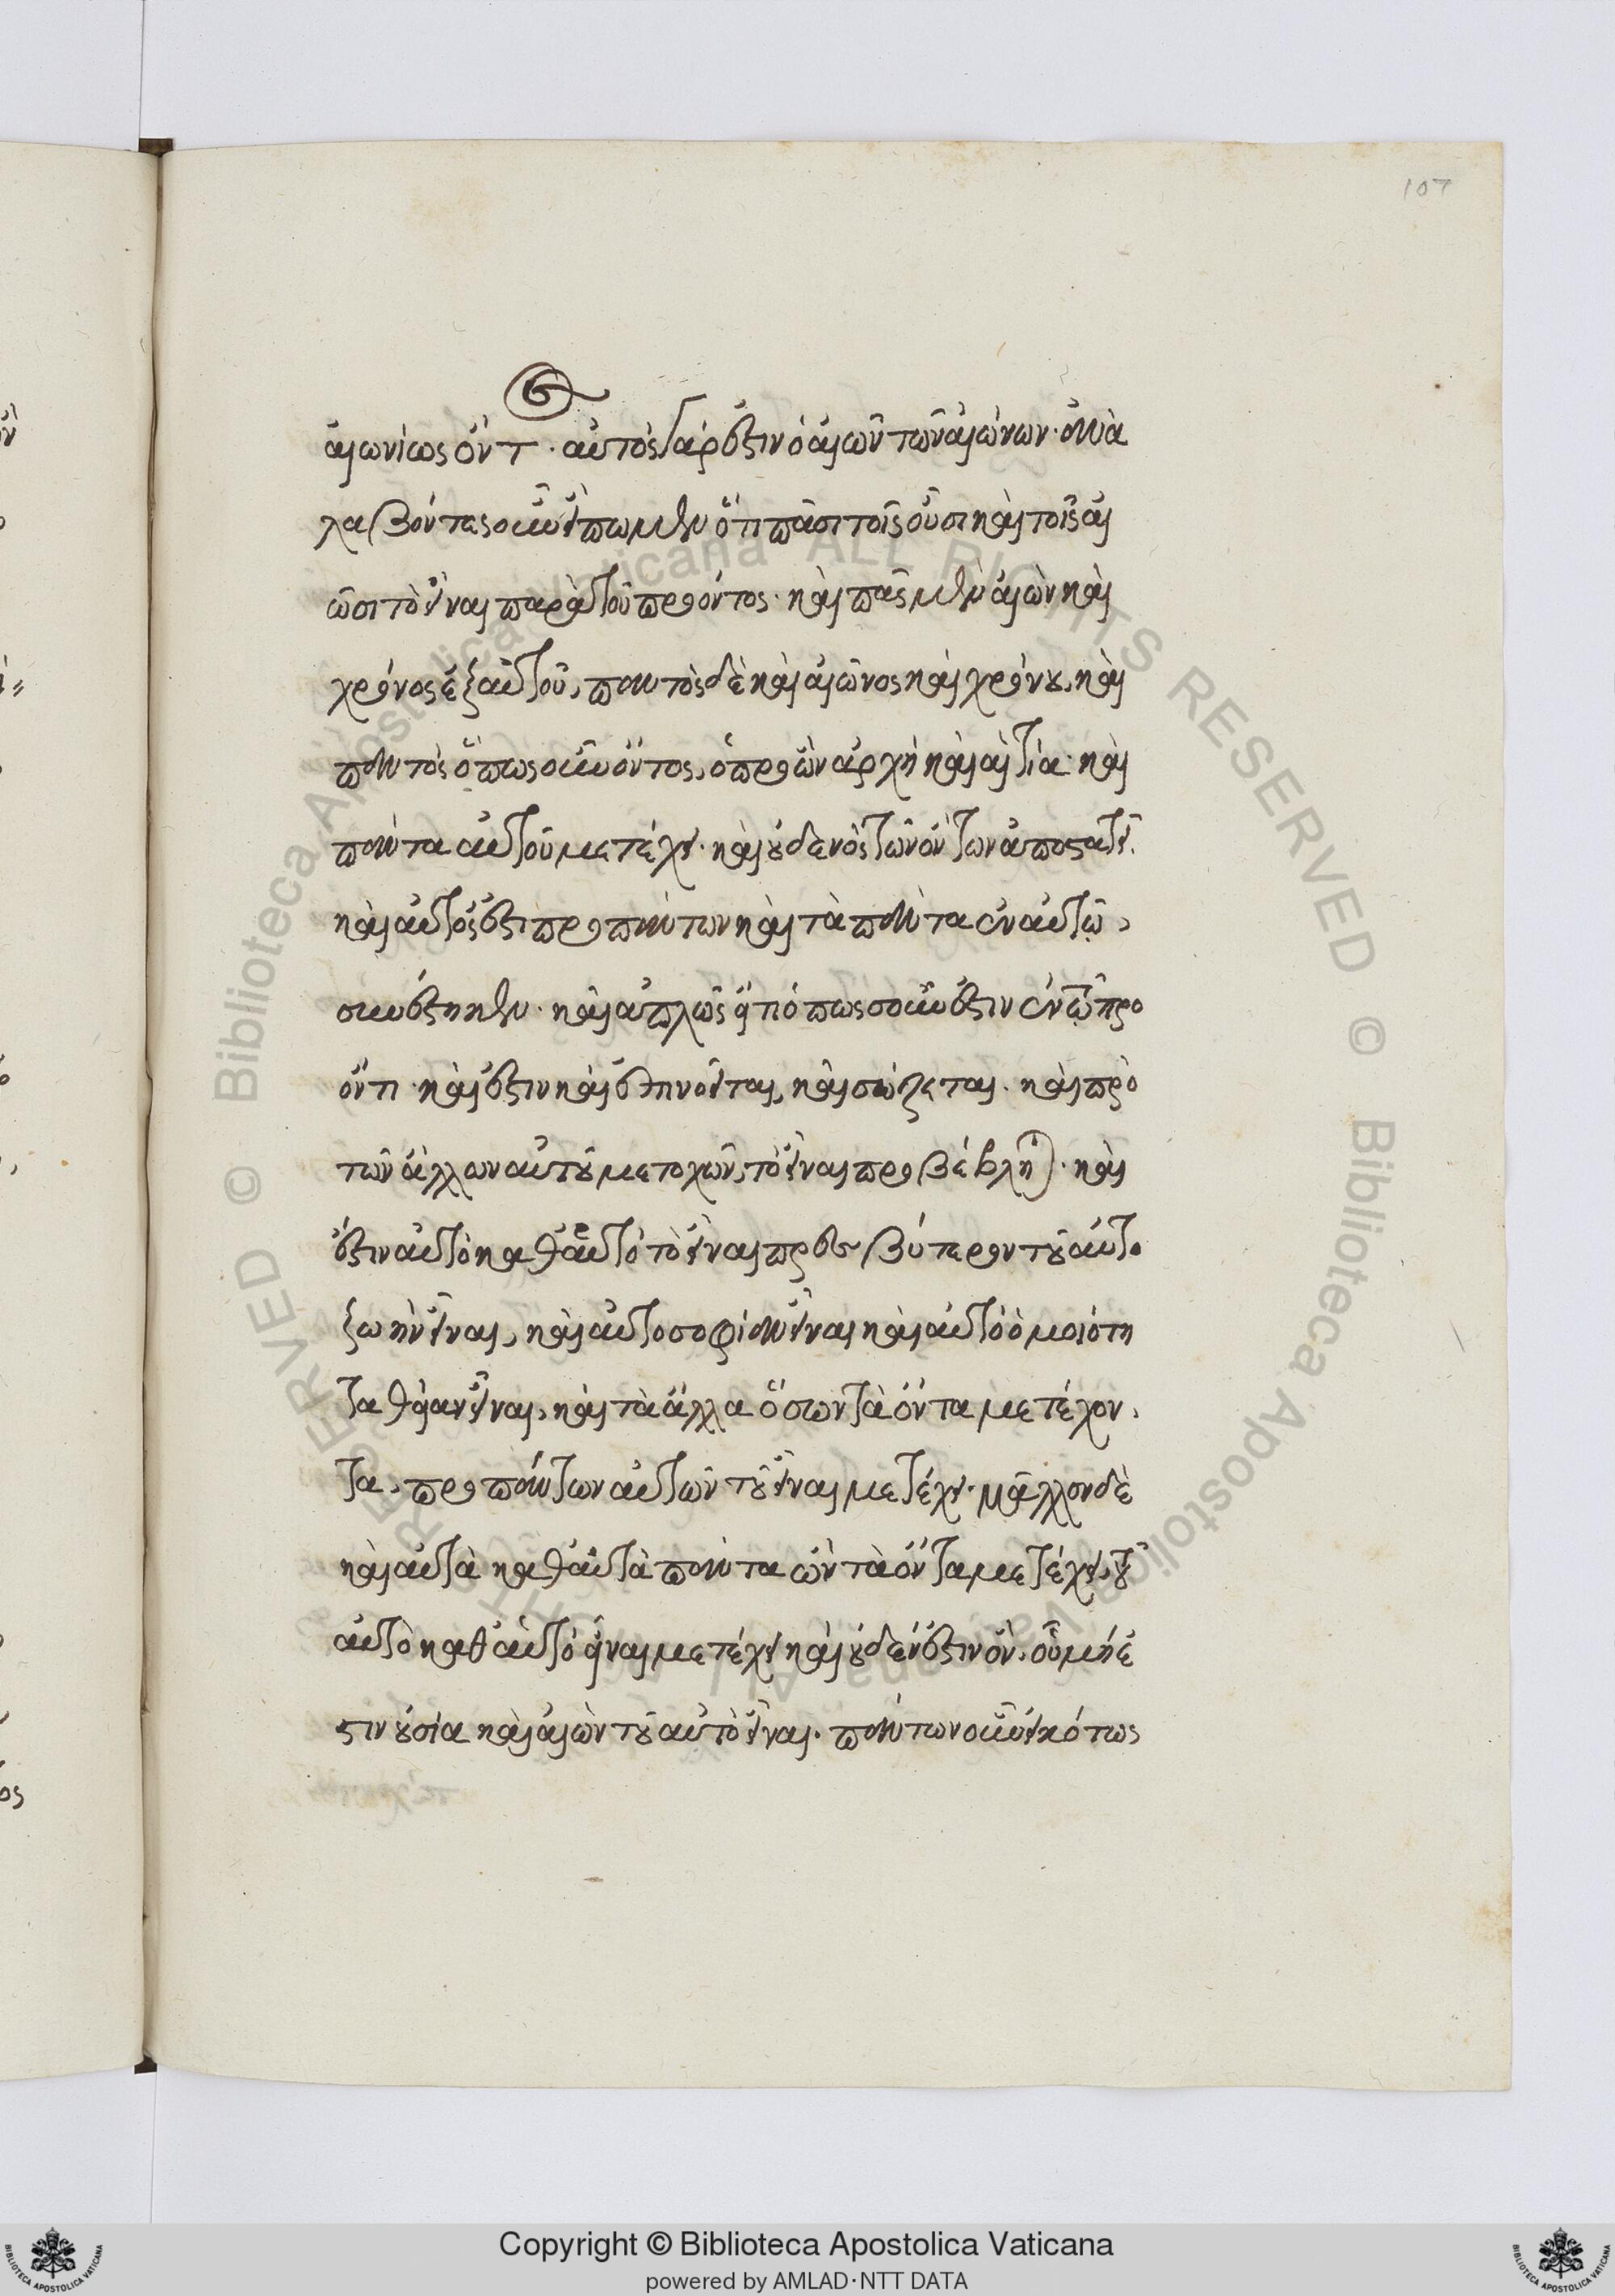 107
αἰωνίως ὄντ. αὐτὸς γάρ ἐστιν ὁ αἰὼν τῶν αἰώνων. ἀνα
λαβόντες οὖν εἴπωμεν ὅτι πᾶσι τοῖς οὖσι καὶ τοῖς αἰ
ῶσι τὸ εἶναι παρὰ τοῦ προόντος. καὶ πᾶς μὲν αἰὼν καὶ
χρόνος ἐξ αὐτοῦ, παντὸς δὲ καὶ αἰῶνος καὶ χρόνου, καὶ
παντὸς ὅπως οὖν ὄντος, ὁ προὼν ἀρχὴ καὶ αἰτία. καὶ
πάντα αὐτοῦ μετέχει. καὶ οὐδενὸς τῶν ὄντων ἀποστατεῖ.
καὶ αὐτός ἐστι πρὸ πάντων καὶ τὰ πάντα ἐν αὐτῷ,
συνέστηκεν. καὶ ἁπλῶς εἴ τι ὁπωσοῦν ἐστιν ἐν τῷ προ
όντι. καὶ ἔστιν καὶ ἐπινοεῖται, καὶ σώζεται. καὶ πρὸ
τῶν ἄλλων αὐτοῦ μετοχῶν, τὸ εἶναι προβέβληται. καὶ
ἔστιν αὐτὸ καθ' αὑτὸ τὸ εἶναι πρεσβύτερον τοῦ αὐτο
ζωὴν εἶναι, καὶ αὐτοσοφίαν εἶναι καὶ αὐτοομοιότη
τα θείαν εἶναι, καὶ τὰ ἄλλα ὅσων τὰ ὄντα μετέχον,
τα, πρὸ πάντων αὐτῶν τοῦ εἶναι μετέχει. μᾶλλον δὲ
καὶ αὐτὰ καθ' αὑτὰ πάντα ὧν τὰ ὄντα μετέχει, τοῦ
αὐτὸ καθ' αὑτὸ εἶναι μετέχει καὶ οὐδέν ἐστιν ὄν, οὗ μή ἐ
στιν οὐσία καὶ αἰὼν τοῦ αὐτὸ εἶναι. πάντων οὖν εἰκότως
Copyright © Biblioteca Apostolica Vaticana
powered by AMLAD·NTT DATA